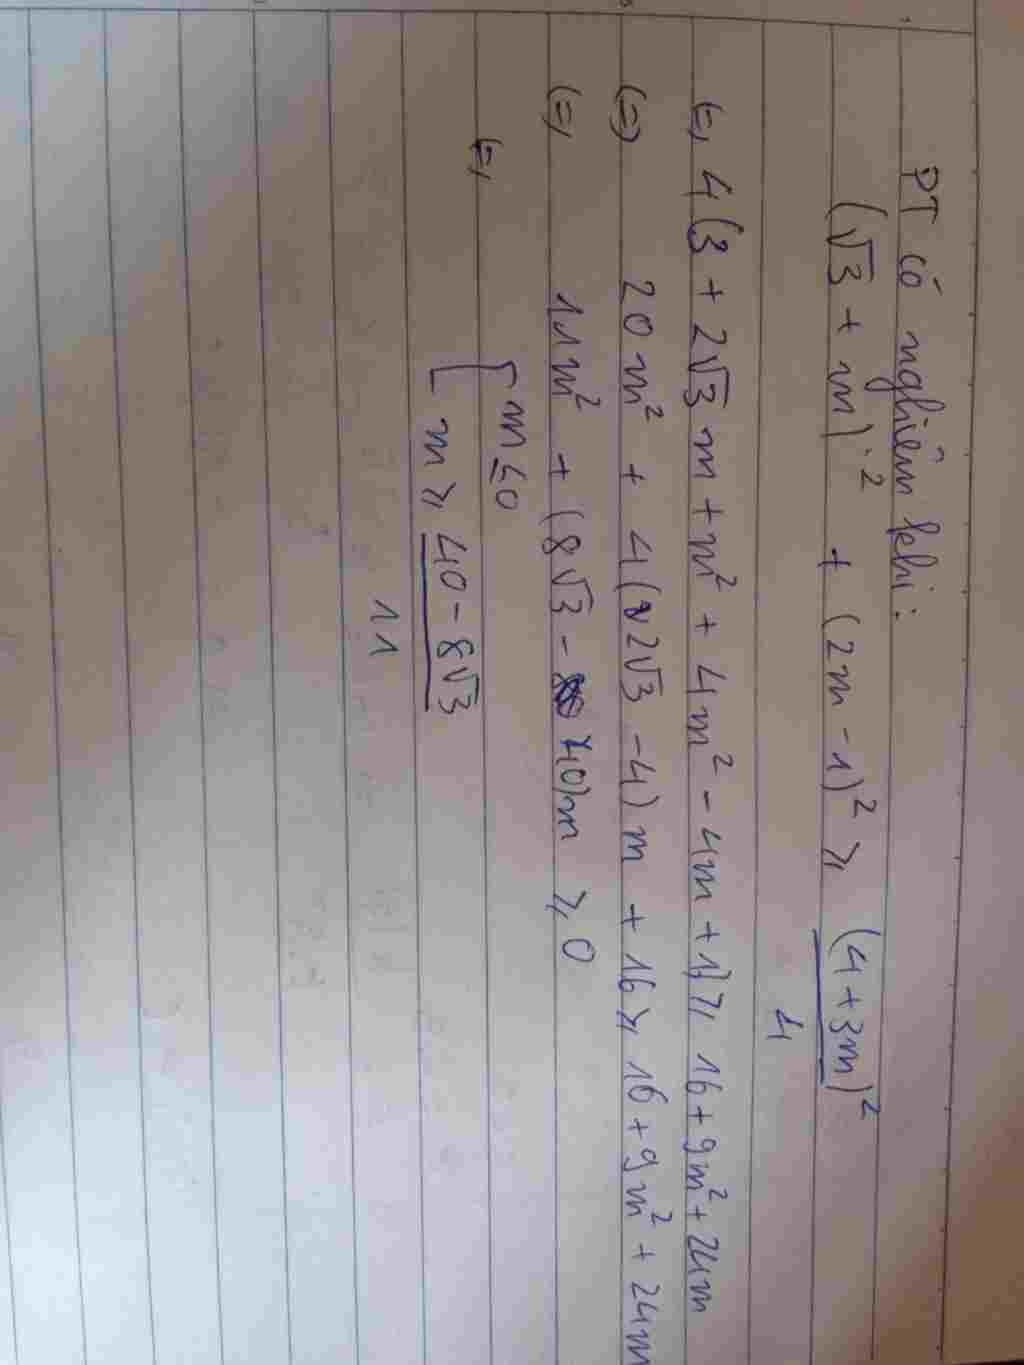 PT có nghiệm khi:
(√3 + m)² + (2m - 1)² ⩾ (4 + 3m)² / 4
(=) 4(3 + 2√3 m + m² + 4m² - 4m + 1) ⩾ 16 + 9m² + 24m
(=) 20m² + 4(2√3 - 4)m + 16 ⩾ 16 + 9m² + 24m
(=) 11m² + (8√3 - 40)m ⩾ 0
(=) [ m ≤ 0
[ m ⩾ 40 - 8√3 / 11